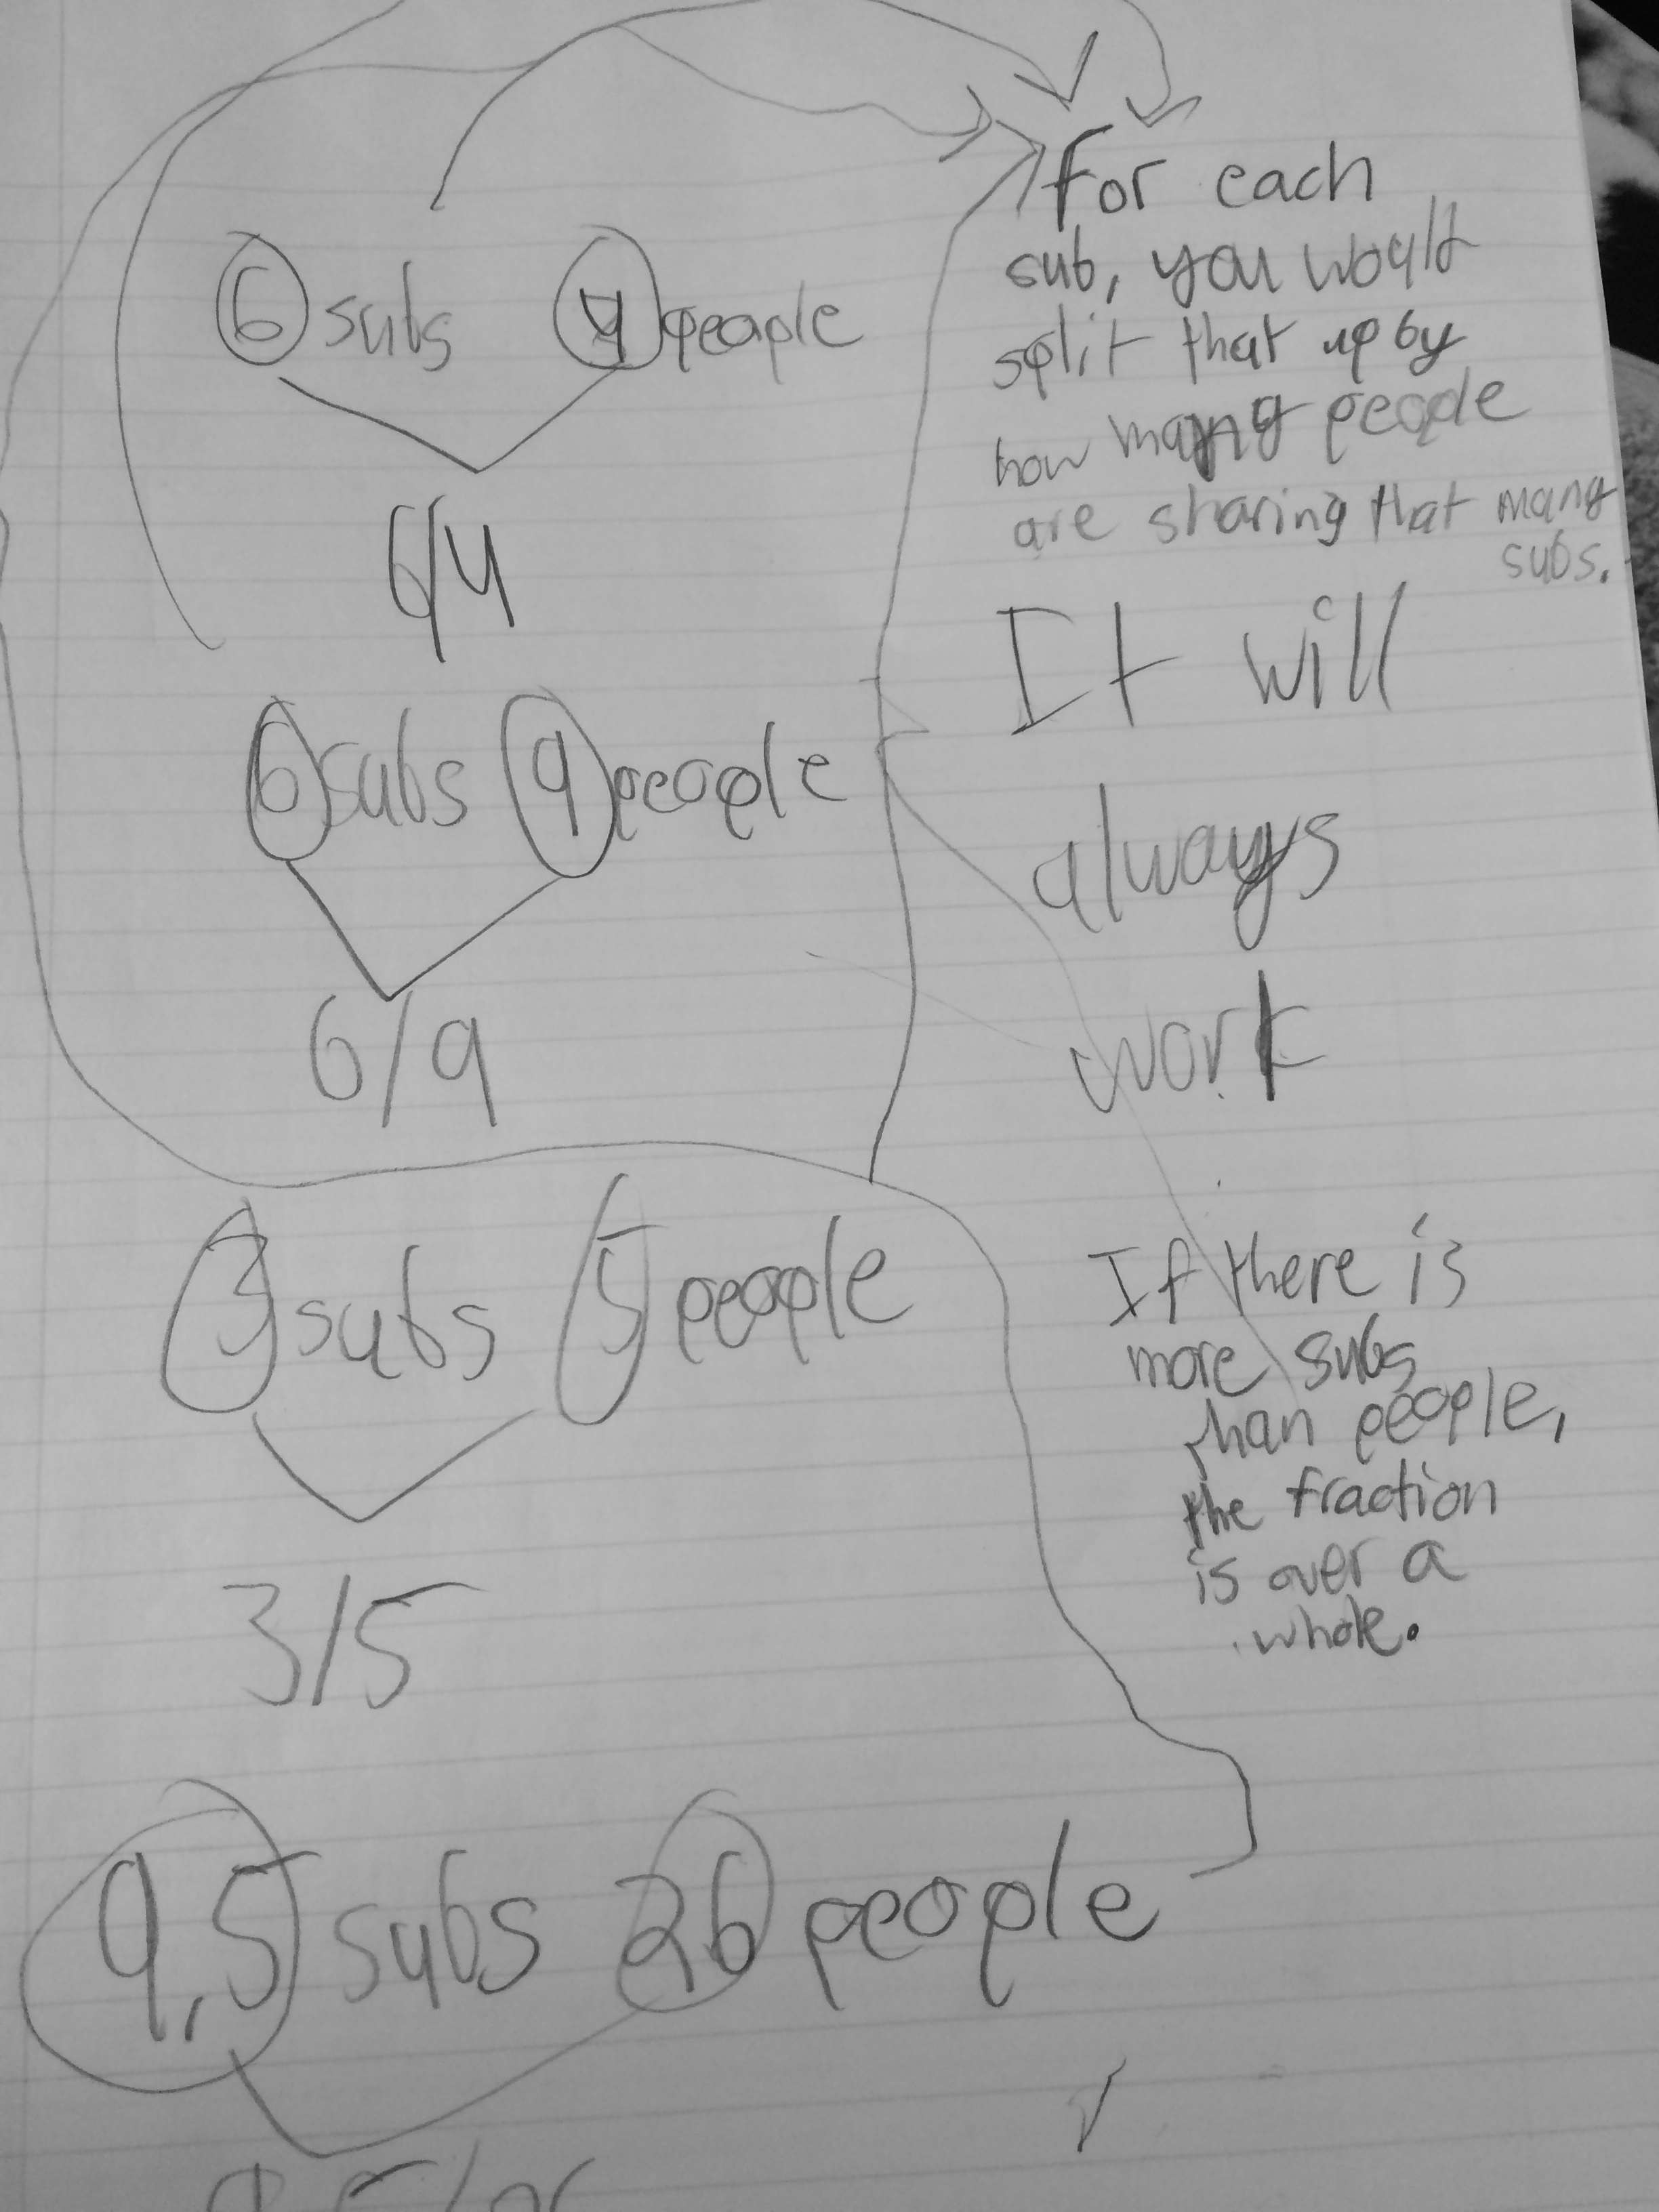 6 subs 4 people
6/4
6 subs 9 people
6/9
3 subs 5 people
3/5
9,5 subs 26 people
for each
sub, you would
split that up by
how many people
are sharing that many
subs.
It will
always
work
If there is
more subs
than people,
the fraction
is over a
whole.